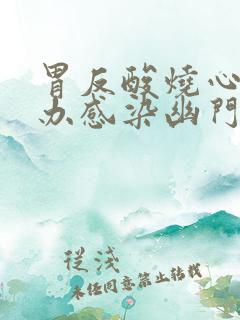 胃反酸燒心
办感染幽門
從淺
未经同意禁止转载